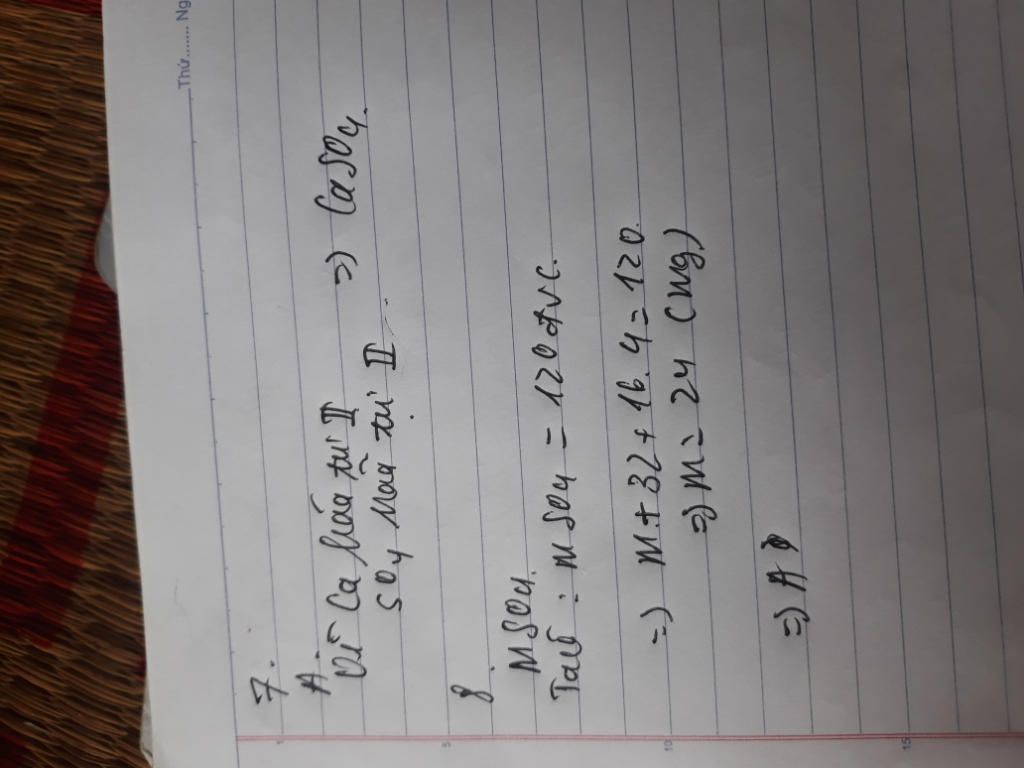 Thứ........ Ng
7.
A.
Vì Ca hóa trị II => CaSO4.
SO4 hoá trị II
8.
MSO4.
Ta có : MSO4 = 120 đvc.
=) M + 32 + 16.4 = 120.
=) M = 24 (Mg)
=) A
1
5
10
15